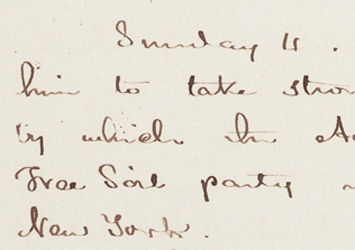 Sunday 11.
him to take stron
by which the A
Free Soil party
New York.